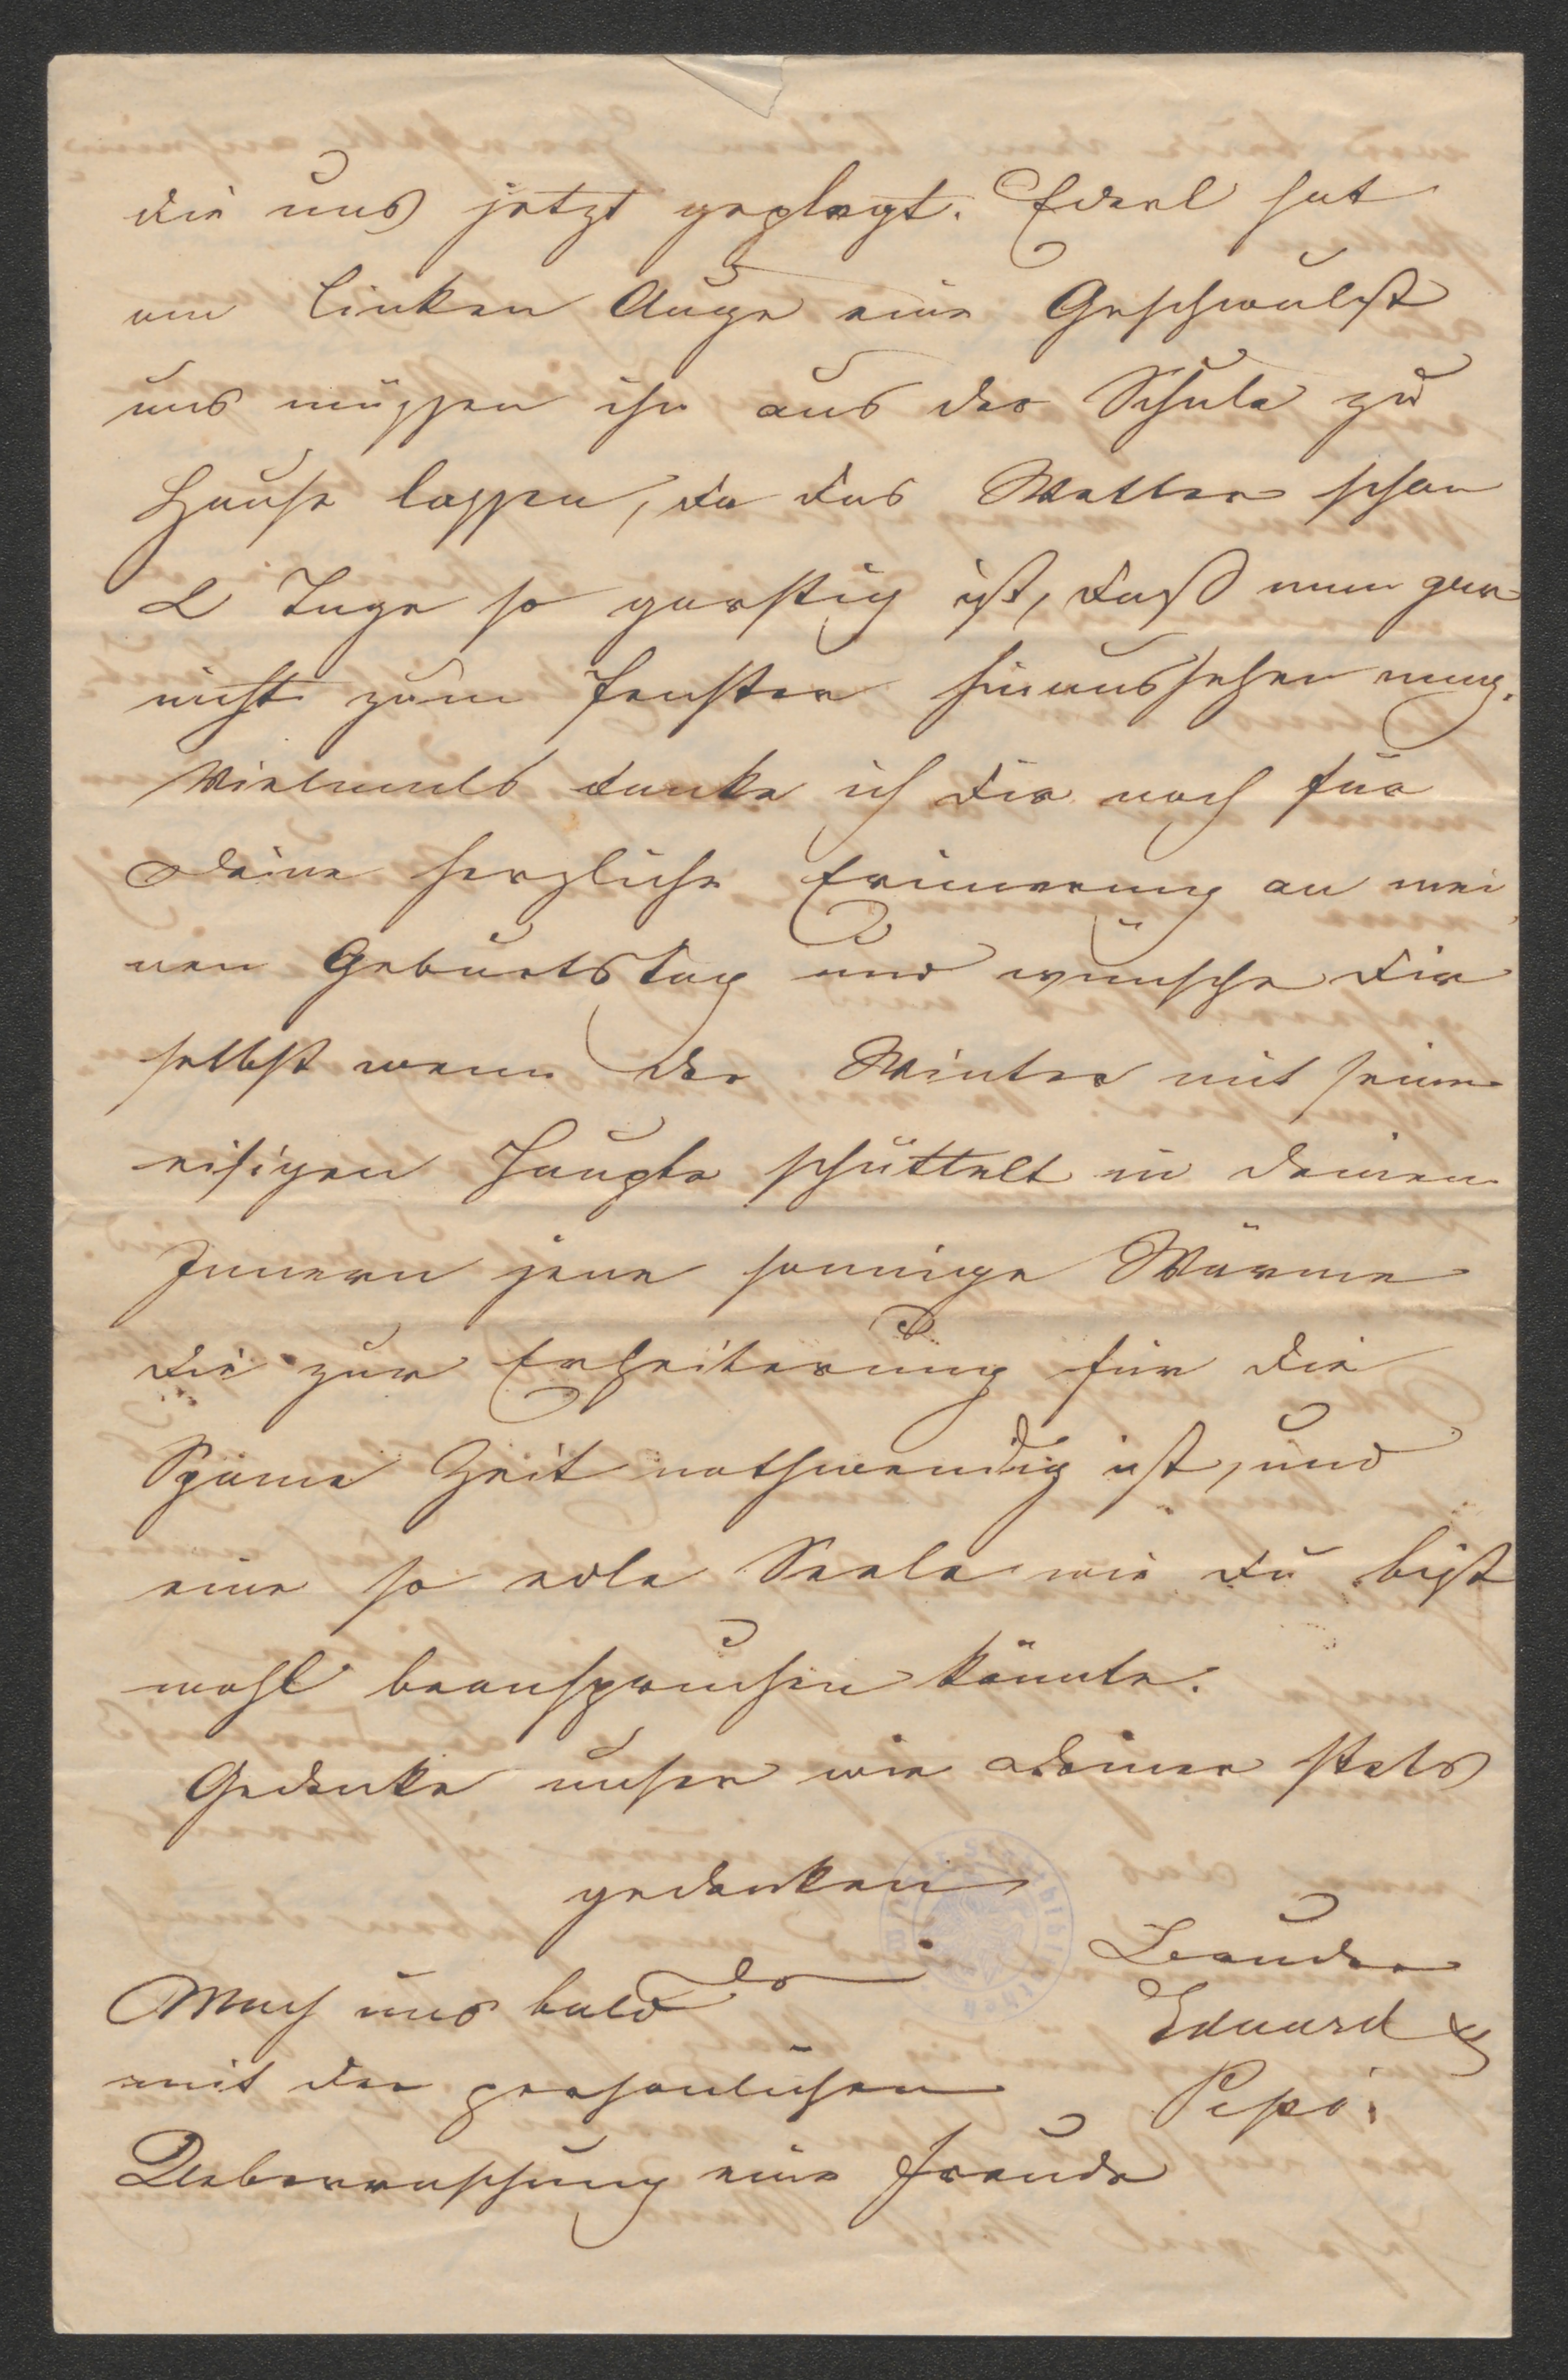 die uns jetzt geplagt. Ederl hat
am linken Auge eine Geschwulst
und müssen ihn aus der Schule zu
Hause lassen, da das Wetter schon
2 Tage so garstig ist, daß man gar
nicht zum Fenster hinaussehen mag.
Vielmals danke ich Dir noch für
Deine herzliche Erinnerung an mei
nen Geburtstag und wünsche Dir
selbst wenn der Winter mit seinem
eisigen Haupte schüttelt in Deinem
Innern jene sonnige Wärme
die zur Erheiterung für die
Zeit nothwendig ist, und
eine so edle Seele wie Du bist
wohl beanspruchen könnte.
Gedenke unser wie Deiner stets
gedenken
Bruder
Eduard &
Pepi.
Mach uns bald
mit der persönlichen
Ueberraschung eine Freude